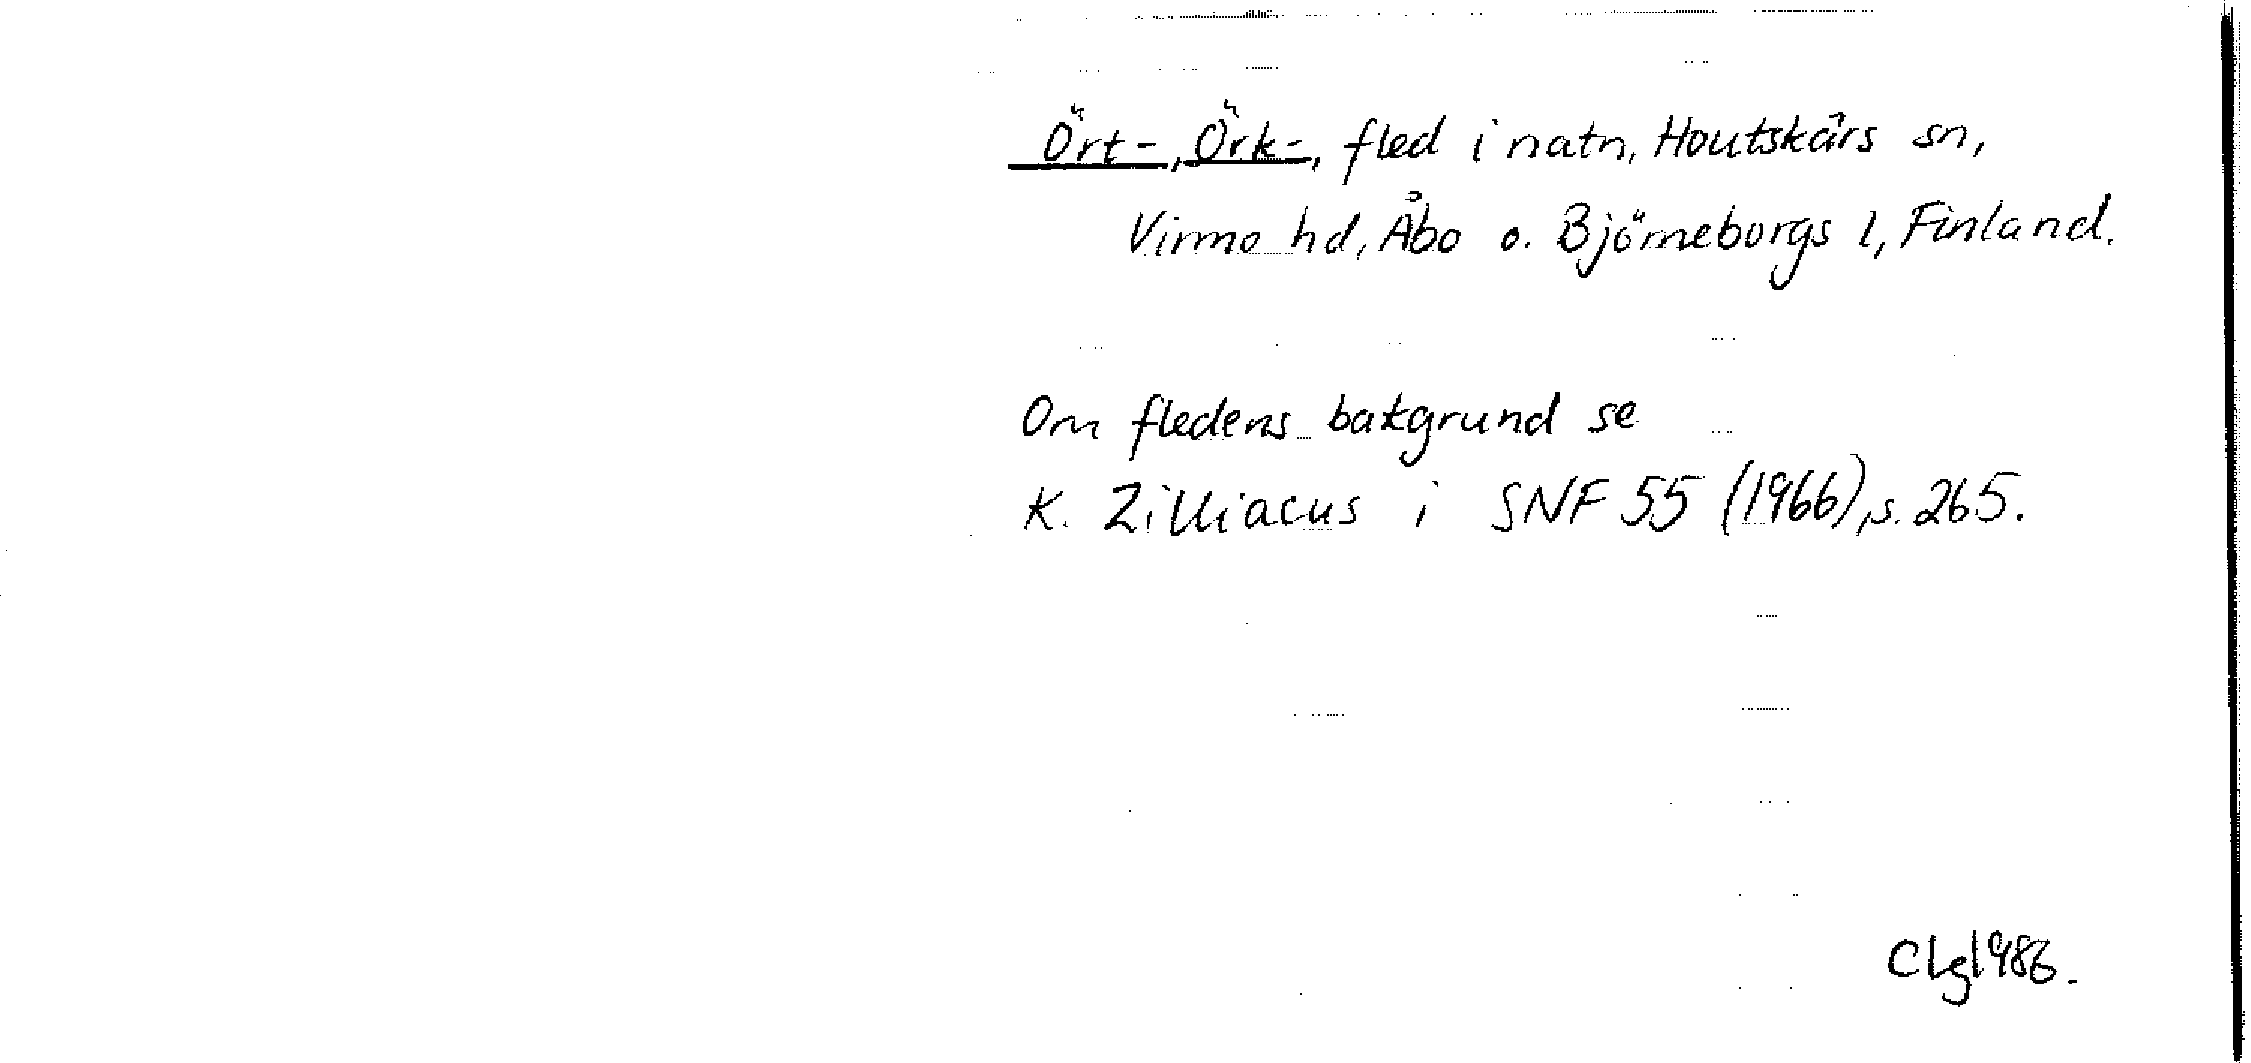 Ört-, Örk-, fled i natn, Houtskärs sn,
Virmo hd, Åbo o. Björneborgs l, Finland.
Om fledens bakgrund se
K. Zilliacus i SNF 55 (1966), s. 265.
CLg1986.